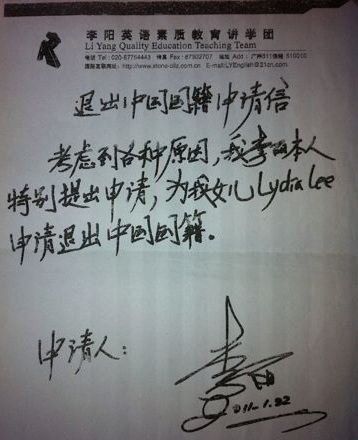 李阳英语素质教育讲学团
Li Yang Quality Education Teaching Team
电话 Tel : 020-87764443 传真 Fax : 87302707 地址 Add : 广州511信箱 510010
国际互联网址: http://www.stone-cliz.com.cn E-mail:LYEnglish@21cn.com
退出中国国籍申请信
考虑到各种原因，我李阳本人
特别提出申请，为我女儿Lydia Lee
申请退出中国国籍。
申请人：
李阳
2011-1.22